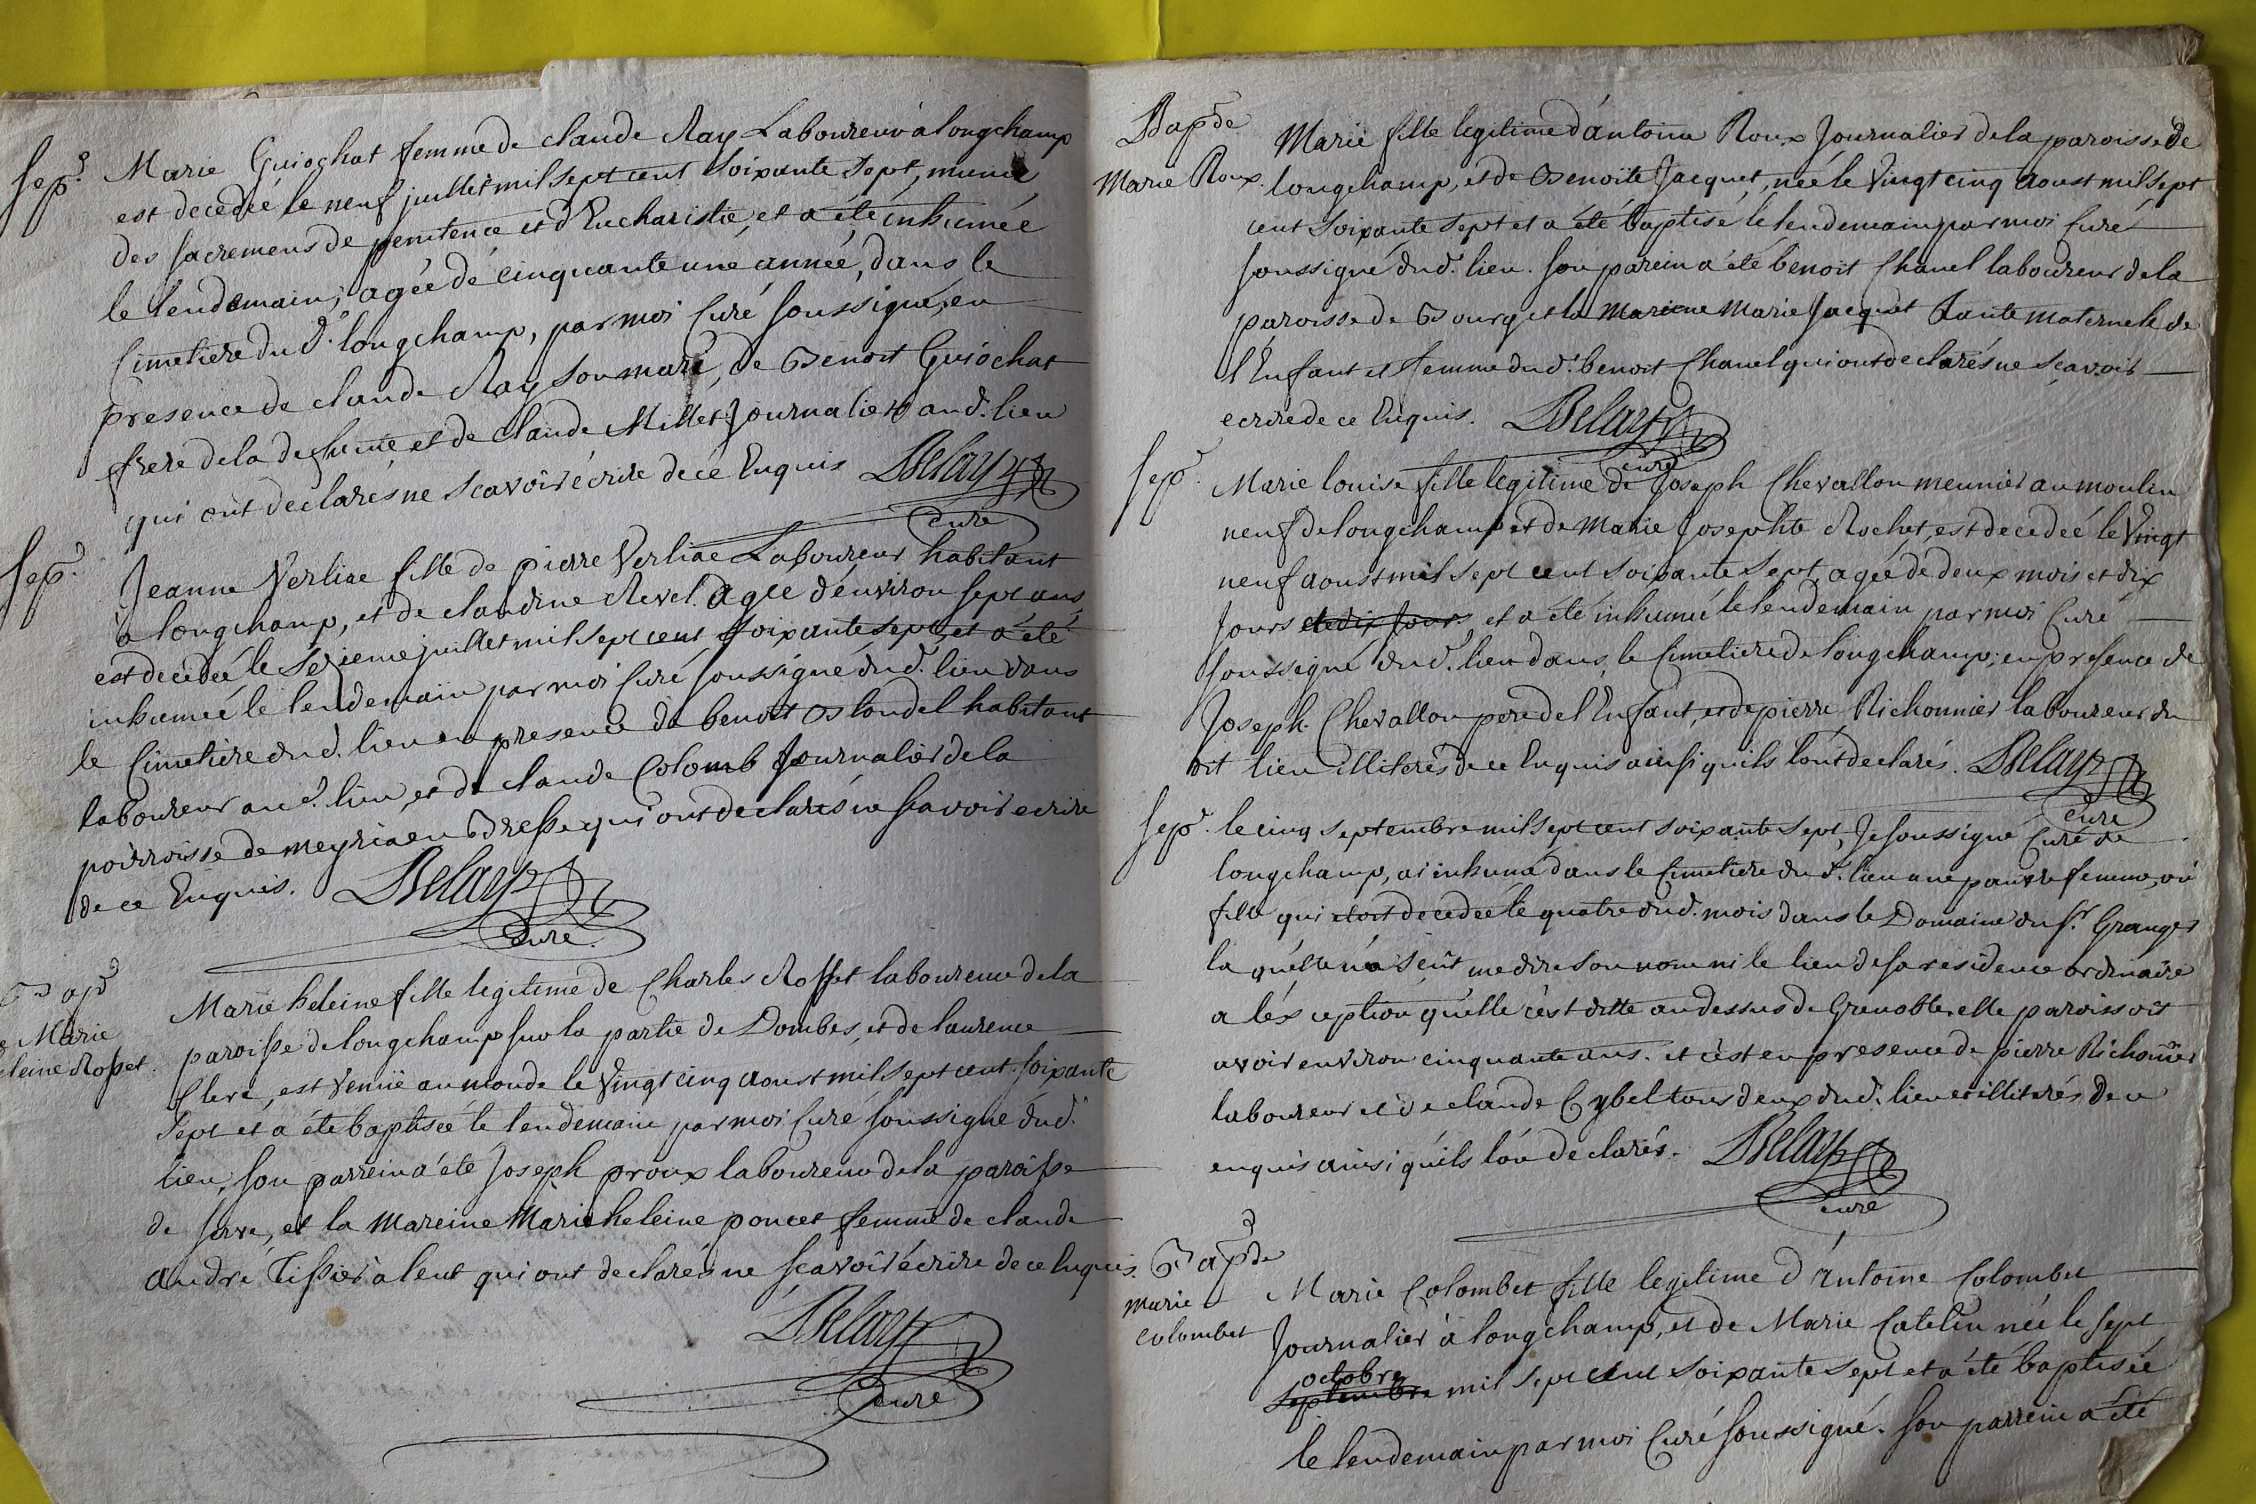 Sep.
Marie Guiochat femme de claude Ray Laboureur à longchamp
est decedée le neuf juillet mil sept cent soixante sept, munie
des sacremens de penitence et d'Eucharistie, et a été inhumée
le lendemain, agée de cinquante une année, dans le
Cimetiere dud. longchamp, par moi Curé soussigné, en
presence de claude Ray son mari, de Benoit Guiochat
frere de la defunte et de claude Millet Journalier aud. lieu
qui ont declarés ne scavoir écrire de ce Enquis Delay
curé
Sep.
Jeanne Verliae fille de pierre Verliae Laboureur habitant
à longchamp, et de claudine Revel. agée d'environ sept ans
est decedée le sezieme juillet mil sept cent soixante sept, et a été
inhumée le lendemain par moi Curé soussigné dud. lieu dans
le Cimetiere dud. lieu en presence de benoit Blondel habitant
laboureur aud. lieu, et de claude Colomb Journalier de la
poirroisse de meyria en Bresse qui ont declarés ne scavoir ecrire
de ce Enquis. Delay
curé
Bap
Marie
leine Rosset.
Marie heleine fille legitime de Charles Rosset laboureur de la
paroisse de longchamp sur la partie de Dombes, et de laurence
Clere, est venue au monde le vingt cinq aoust mil sept cent soixante
sept et a éte baptisée le lendemain par moi Curé soussigné dud.
lieu, son parrein a été Joseph proux laboureur de la paroisse
de serve, et la mareine Marie heleine poncet femme de claude
andré Tissier à lent qui ont declarés ne scavoir écrire de ce Enquis.
Delay
curé
Bap de
Marie Roux.
Marie fille legitime d'antoine Roux Journalier de la paroisse de
longchamp, et de Benoite Jacquet, née le vingt cinq aoust mil sept
cent soixante sept et a été baptisé le lendemain par moi Curé
soussigné dud. lieu. son parein a été benoit Chanel laboureur de la
paroisse de Bourg et la mareine Marie Jacquet Tante maternele de
l'Enfant et femme dud. benoit Chanel qui ont declarés ne scavoir
ecrire de ce Enquis. Delay
curé
Sep.
Marie louise fille legitime de Joseph Chevallon meunier au moulin
neuf de longchamp et de Marie Josephte Rochet, est decedeé le vingt
neuf aoust mil sept cent soixante sept, agée de deux mois et dix
Jours et dix Jours et a été inhumé le lendemain par moi Curé
soussigné dud. lieu dans le Cimetiere de longchamp, en presence de
Joseph Chevallon pere de l'Enfant, et de pierre Richonnier laboureur du
dit lieu illiterés de ce Enquis ainsi quils l'ont declarés. Delay
curé
Sep. le cinq septembre mil sept cent soixante sept, Je soussigné Curé de
longchamp, ai inhumé dans le Cimetiere dud. lieu une pauvre femme, où
fille qui etoit decedée le quatre dud. mois dans le Domaine du Sr. Granger
la quelle n'a sçut me dire son nom ni le lieu de sa residence ordinaire
a léxception quelle s'est ditte au dessus de Grenoble, elle paroissoit
avoir environ cinquante ans. et c'est en presence de pierre Richonnier
laboureur et de claude Cybel tous deux dud. lieu et illiterés de ce
enquis ainsi quils l'on declarés. Delay
curé
Bap de
marie
colombet
Marie Colombet fille legitime d'Antoine Colombet
Journalier à longchamp, et de Marie Catelin née le sept
octobre
septembre mil sept cent soixante sept et a été baptisée
le lendemain par moi Curé soussigné. son parrein a été